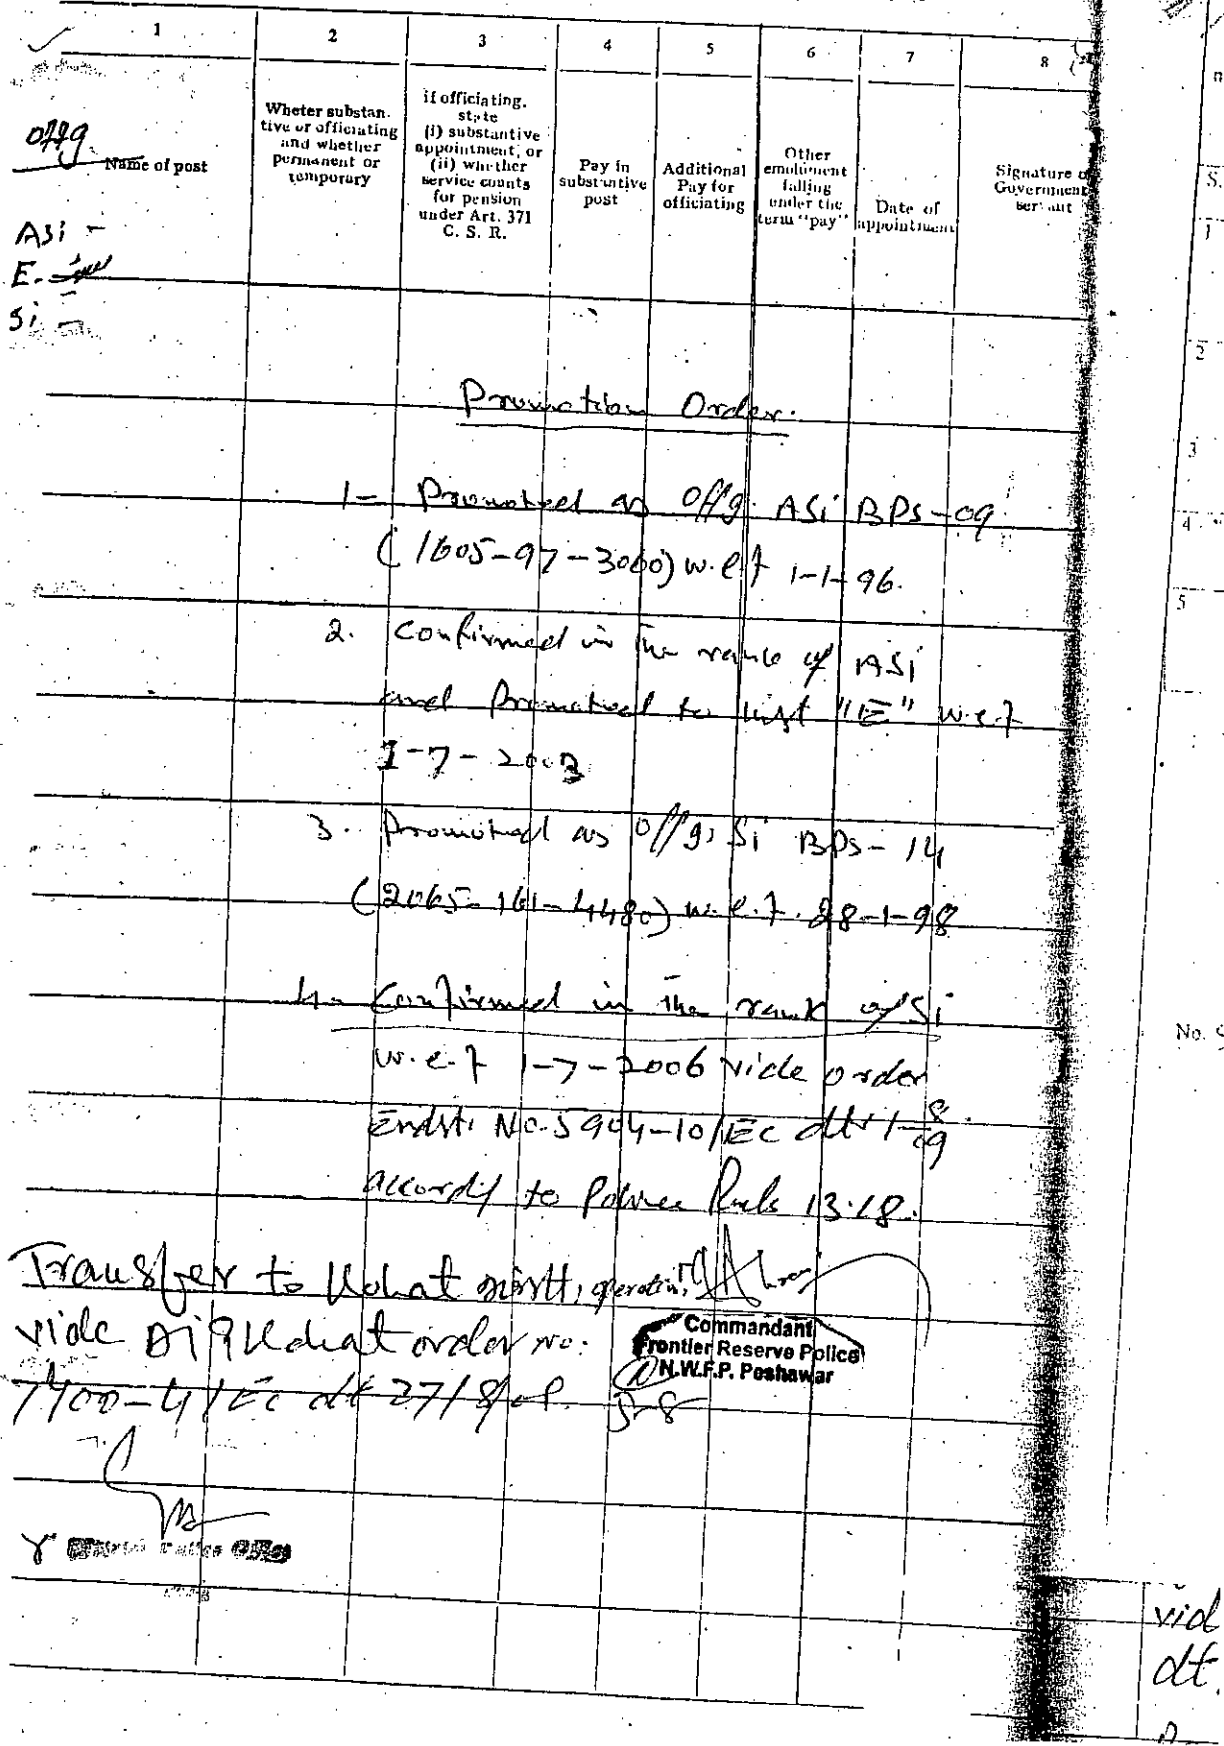 1 2 3 4 5 6 7 8
offg
Name of post
Wheter substan-
tive or officiating
and whether
permanent or
temporary
if officiating,
state
(i) substantive
appointment, or
(ii) whether
service counts
for pension
under Art. 371
C. S. R.
Pay in
substantive
post
Additional
Pay for
officiating
Other
emolument
falling
under the
term "pay"
Date of
appointment
Signature of
Government
servant
ASi -
E.
Si -
Promotion Order.
1- Promoted as Offg. ASi BPS-09
(1605-97-3060) w.e.f 1-1-96.
2. Confirmed in the rank of ASi
and Promoted to list "E" w.e.f
1-7-2003
3. Promoted as offg: Si BPS-14
(2065-161-4480) w.e.f. 28-1-98
4- Confirmed in the rank of Si
w.e.f 1-7-2006 vide order
Endst: No. 5904-10/EC dt: 1-8-09
accordy to Police Rule 13.18.
Transfer to Kohat
vide DIG Kohat order no:
7400-4/EC dt 27/8/
Commandant
Frontier Reserve Police
N.W.F.P. Peshawar
5-8
S.
1
2
3
4
5
No.
vid
dt.